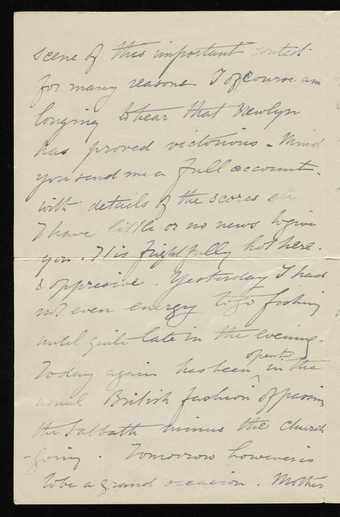 scene of this important contest.
for many reasons I of course am
longing to hear that Newlyn
has proved victorious - Mind
you send me a full account.
with details of the scores etc
I have little or no news to give
you. It is frightfully hot here.
& oppressive. Yesterday I had
not even energy to go fishing
until quite late in the evening.
Today again has been spent in the
usual British fashion of passing
the Sabbath minus the church
-going. Tomorrow however is
to be a grand occasion. Mother